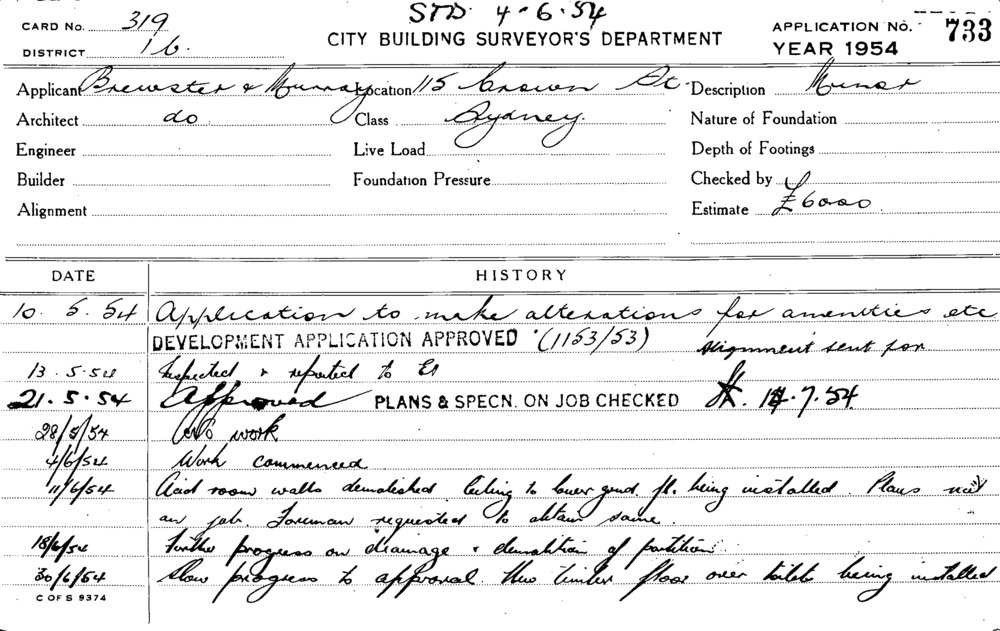 CARD No. 319
STD 4-6-54
APPLICATION No. 733
DISTRICT 16
CITY BUILDING SURVEYOR'S DEPARTMENT
YEAR 1954
Applicant Brewster & Murray Location 115 Crown St. Description Minor
Architect do Class Sydney. Nature of Foundation
Engineer Live Load Depth of Footings
Builder Foundation Pressure Checked by
Alignment Estimate £6000
DATE HISTORY
10.5.54 Application to make alterations for amenities etc
DEVELOPMENT APPLICATION APPROVED (1153/53) Alignment sent for
13.5.54 Inspected & reported to
21.5.54 Approved PLANS & SPECN. ON JOB CHECKED 7.54
28/5/54 No work
4/6/54 Work commenced
11/6/54 Acid room walls demolished. Ceiling to lower grnd. fl. being installed. Plans not
on job. Foreman requested to obtain same.
18/6/54 Further progress on drainage & demolition of partition.
30/6/54 Slow progress to approval. New timber floor over toilets being installed
C OF S 9374